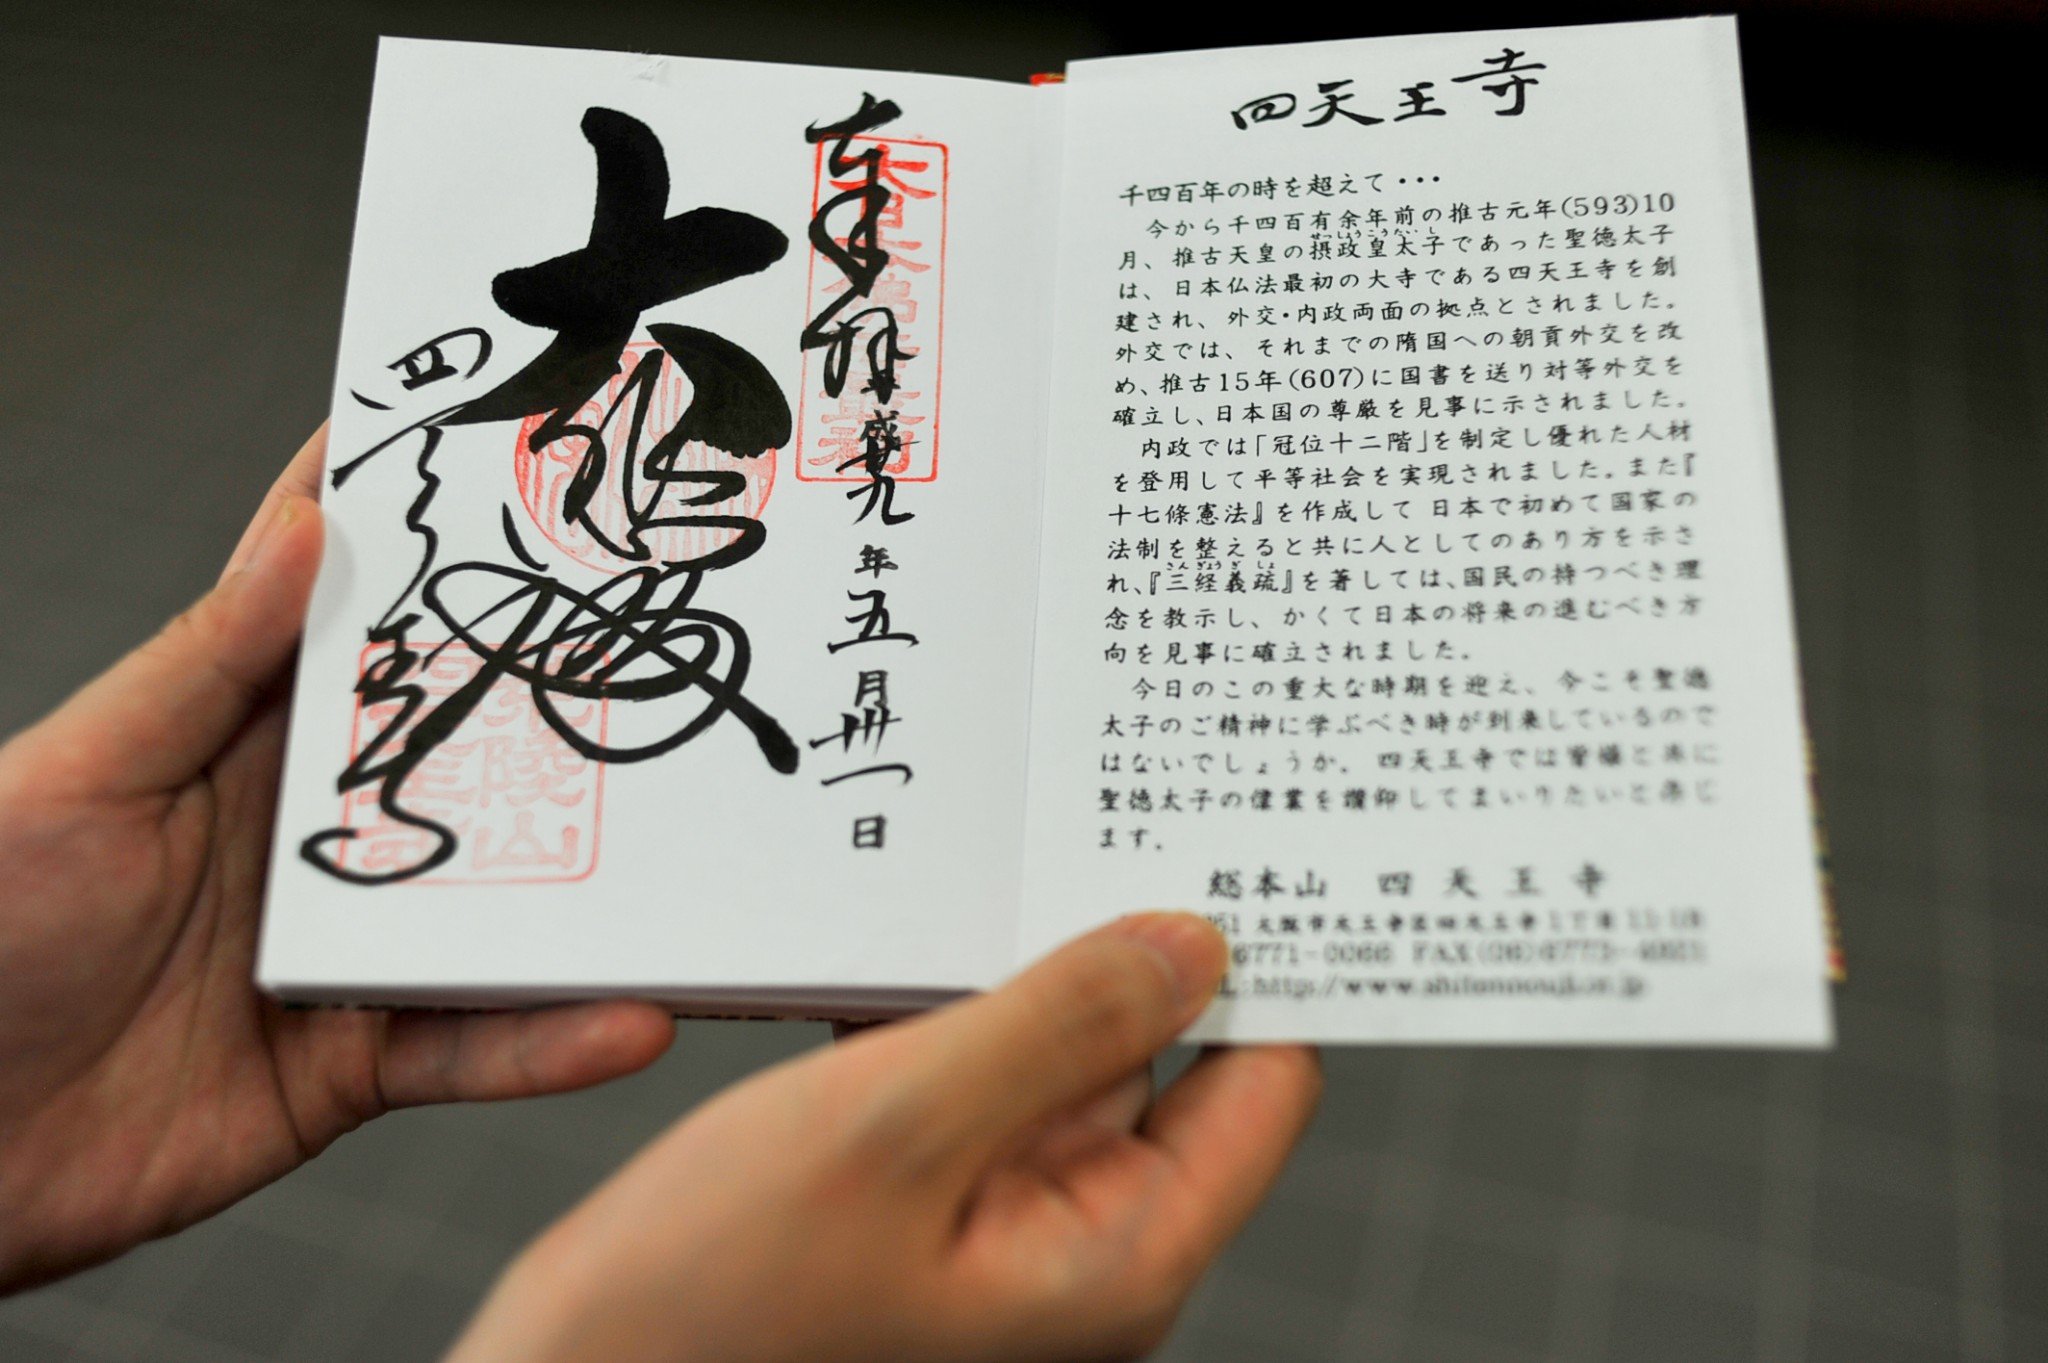 奉拝
廿九年五月卅一日
大悲殿
四天王寺
大日本佛法最初
荒陵山
四天王寺
四天王寺
千四百年の時を超えて・・・
今から千四百有余年前の推古元年(593)10
せっしょうこうたいし
月、推古天皇の摂政皇太子であった聖徳太子
は、日本仏法最初の大寺である四天王寺を創
建され、外交・内政両面の拠点とされました。
外交では、それまでの隋国への朝貢外交を改
め、推古15年(607)に国書を送り対等外交を
確立し、日本国の尊厳を見事に示されました。
内政では「冠位十二階」を制定し優れた人材
を登用して平等社会を実現されました。また『
十七條憲法』を作成して日本で初めて国家の
法制を整えると共に人としてのあり方を示さ
さんぎょうぎしょ
れ、『三経義疏』を著しては、国民の持つべき理
念を教示し、かくて日本の将来の進むべき方
向を見事に確立されました。
今日のこの重大な時期を迎え、今こそ聖徳
太子のご精神に学ぶべき時が到来しているので
はないでしょうか。四天王寺では皆様と共に
聖徳太子の偉業を讃仰してまいりたいと念じ
ます。
総本山 四天王寺
51 大阪市天王寺区四天王寺1丁目11-18
6771-0066 FAX(06)
http://www.shitennoji.or.jp